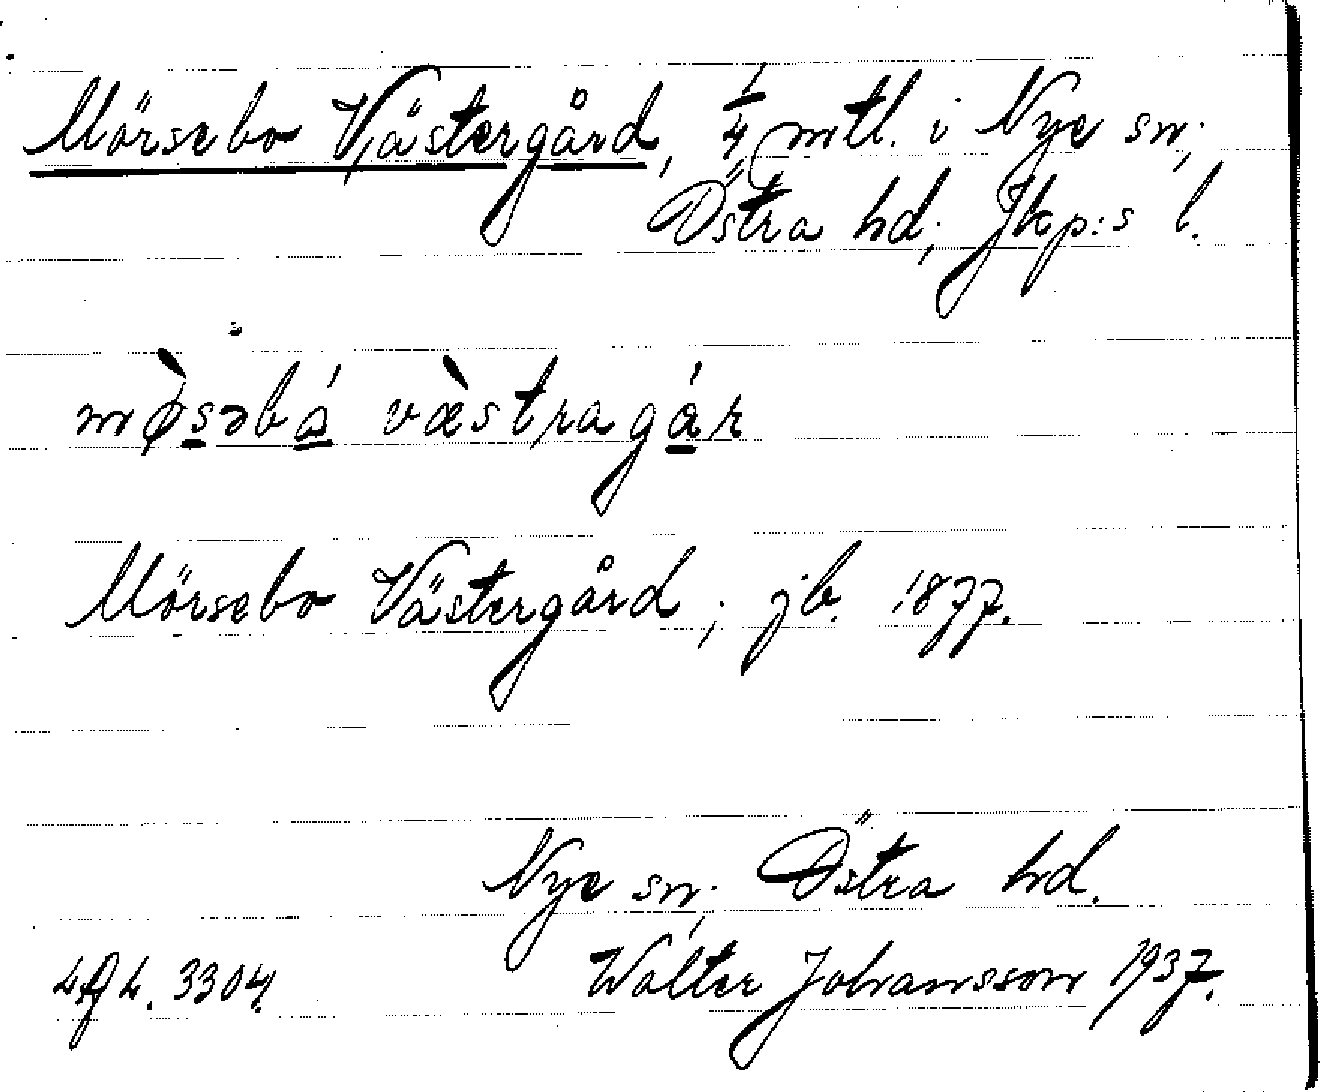 Mörsebo Västergård, 1/4 mtl. i Nye sn;
Östra hd; Jkp:s l.
mø̀səbá væ̀stragár
Mörsebo Västergård; jb. 1877.
Nye sn; Östra hd.
Walter Johansson 1937.
3304.